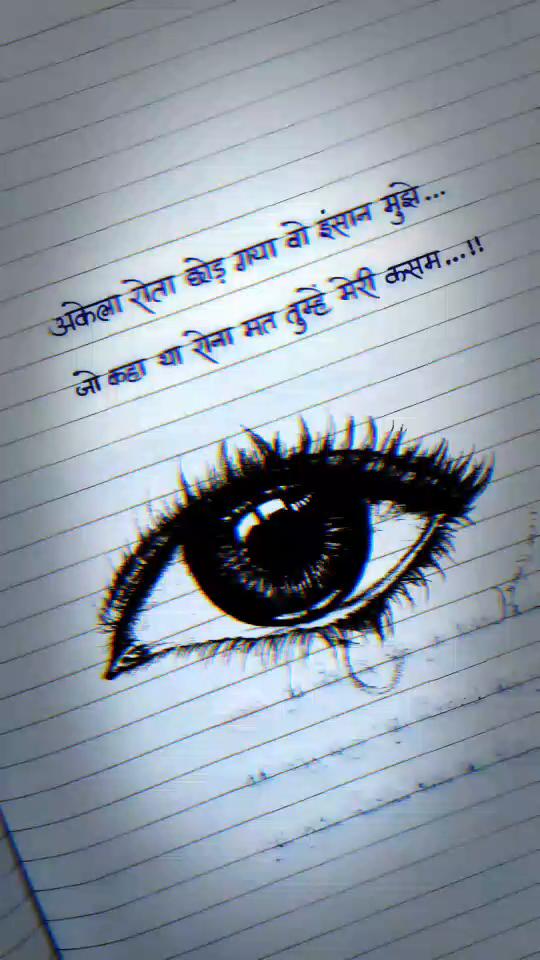 अकेला रोता छोड़ गया वो इंसान मुझे...
जो कहा था रोना मत तुम्हें मेरी कसम...!!